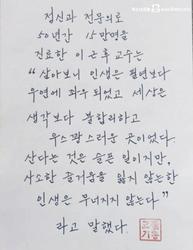 정신과 전문의로
50년간 15만명을
진료한 이근후교수는
"살아보니 인생은 필연보다
우연에 좌우 되었고 세상은
생각보다 불합리하고
우스꽝스러운 곳이었다.
산다는 것은 슬픈 일이지만,
사소한 즐거움을 잃지 않는한
인생은 무너지지 않는다."
라고 말했다.